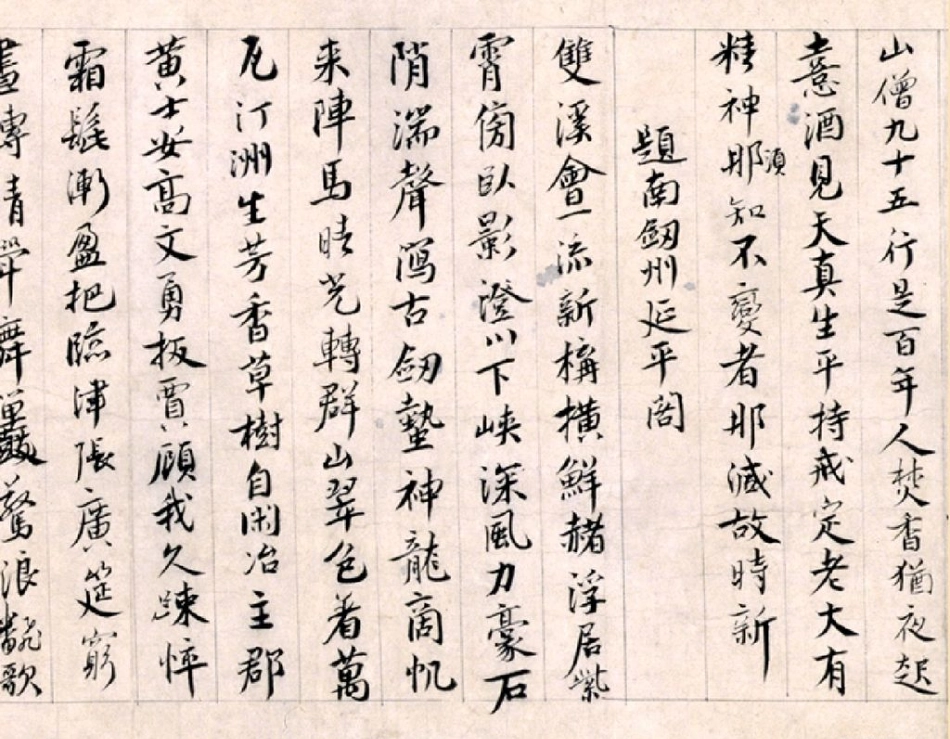 山僧九十五行是百年人焚香猶夜起
憙酒見天真生平持戒定老大有
精神那須知不變者那減故時新
題南劔州延平閣
雙溪會一流新構橫鮮赭浮居紫
霄傍臥影澄川下峽深風力豪石
陗湍聲瀉古劔蟄神龍商帆
来陣馬晴光轉群山翠色着萬
瓦汀洲生芳香草樹自閑冶主郡
黄士安高文勇扳賈顧我久踈悴
霜髭漸盈把臨津張廣筵窮
晝傳清斝舞驚浪翻歌